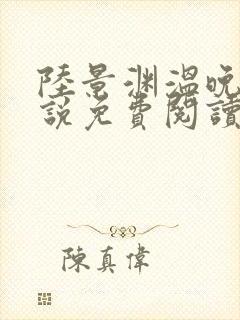 陸景渊溫晚
說免費閱讀
陳真偉